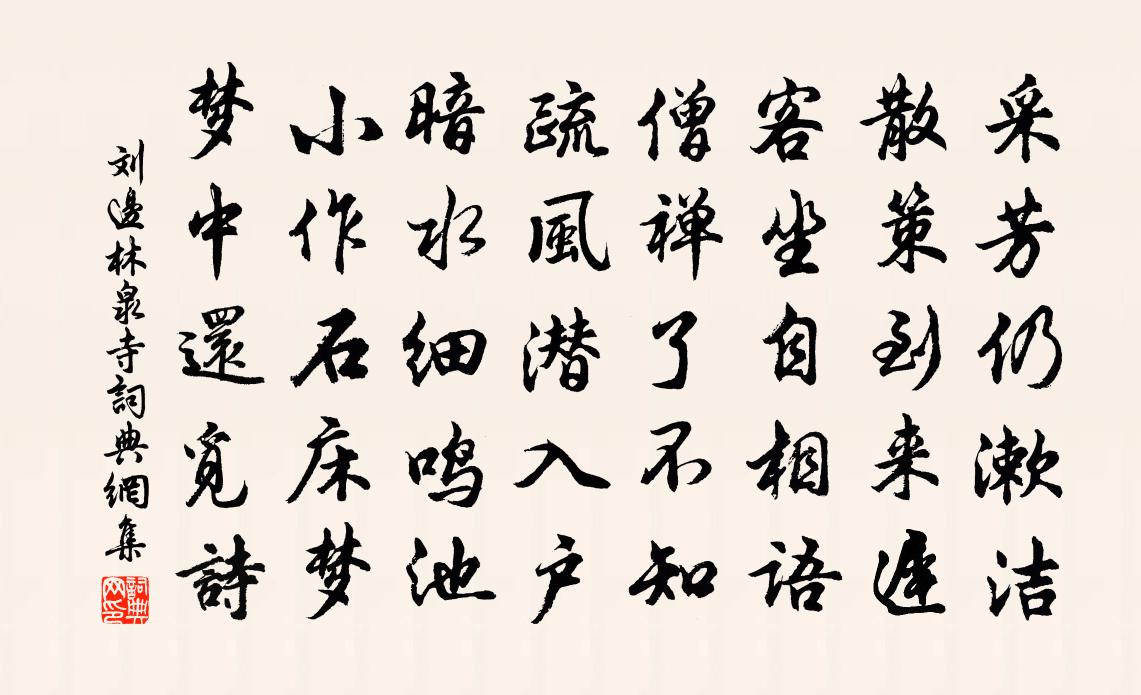 采芳仍漱洁
散策到来遲
客坐自相語
僧禅了不知
疏風潜入户
暗水细鸣池
小作石床梦
梦中還覓詩
刘邊林泉寺詞典網集
詞典网印